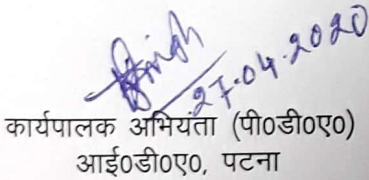 27.04.2020
कार्यपालक अभियंता (पी०डी०ए०)
आई०डी०ए०, पटना